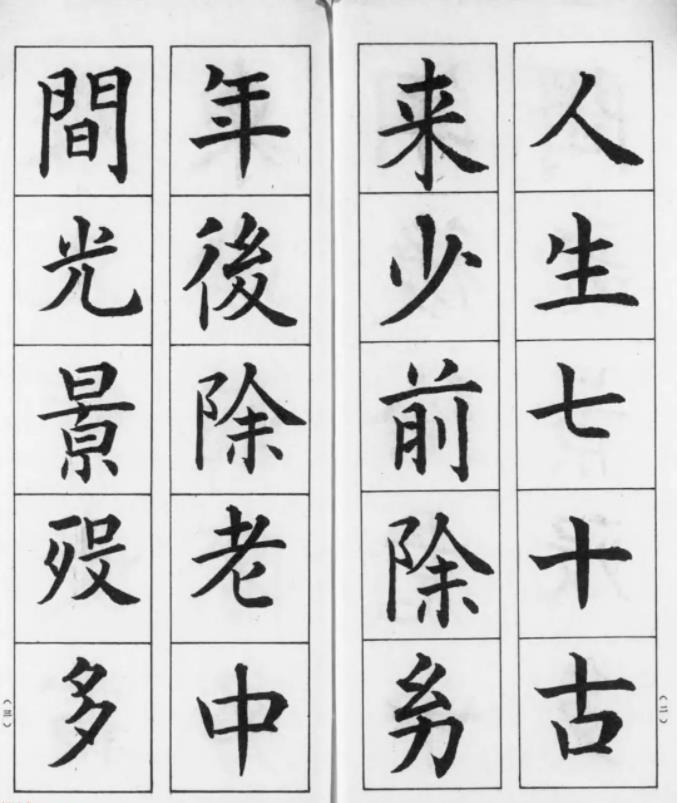 人生七十古
来少前除幼
（二）
年後除老中
間光景殁多
（三）